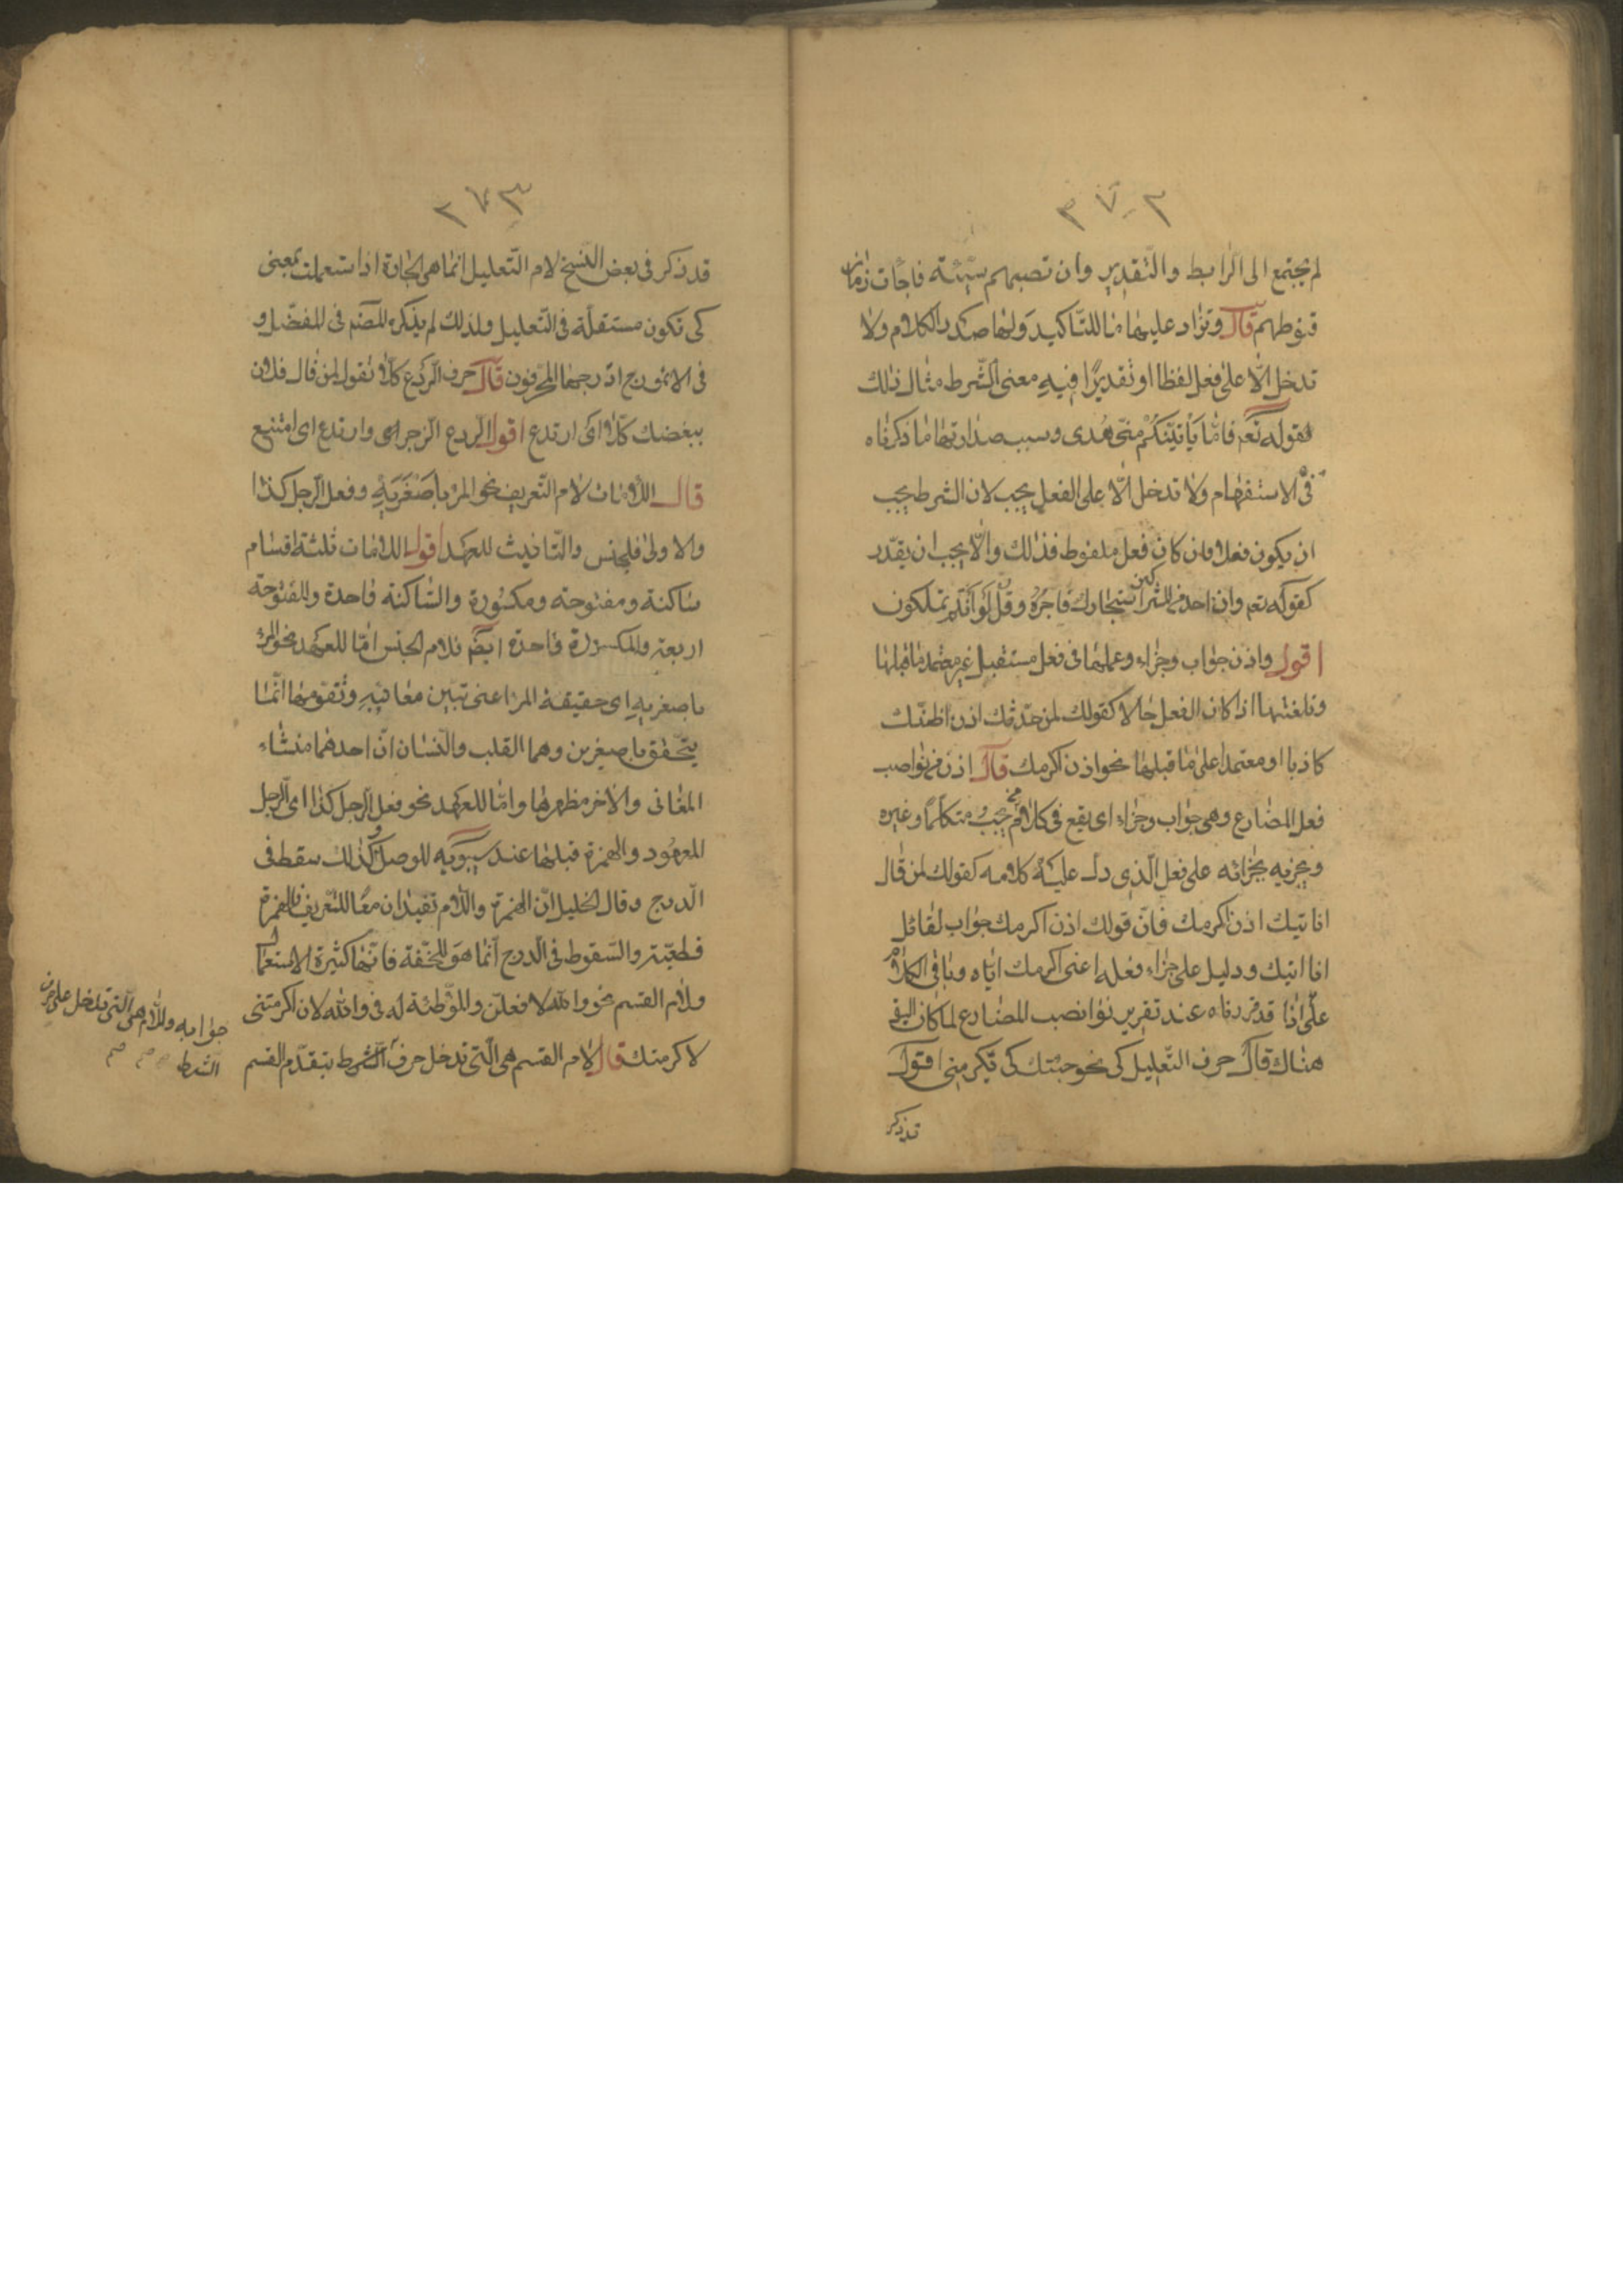 ٢٧٢
لم يحتج الى الرابط والتقدير وان تصبهم سيئة فاجات زمان
قنوطهم قال وتزاد عليها ما للتاكيد ولها صدر الكلام ولا
تدخل الّا على فعل لفظا او تقديرًا فيه معنى الشرط مثال ذلك
قوله تعم فامّا يأتينّكم منّي هُدى وسبب صدارتها ما ذكرناه
في الاستفهام ولا تدخل الّا على الفعل يجب لان الشرط يجب
ان يكون فعلا فان كان فعل ملفوظ فذالك والّا يجب ان يقدّر
كقوله تعم وان احد من المشركين استجارك فاجره وقل لو انتم تملكون
اقول واذن جواب وجزاء وعملها في فعل مستقبل غير معتمد ما قبلها
وتلغيها اذا كان الفعل حالا كقولك لمن حدّثك اذن اظنّك
كاذبا او معتمدا على ما قبلها نحو اذن اكرمك قال اذن من نواصب
فعل المضارع وهى جواب وجزاء اى يقع في كلام مجيب متكلّما وغيره
ويجزيه بجزائه على فعل الّذى دلّ عليه كلامه كقولك لمن قال
انا اتيك اذن اكرمك فانّ قولك اذن اكرمك جواب لقائل
انا اتيك ودليل على جزاء فعله اعنى اكرمك ايّاه وباقي الكلام
على اذا قد قررناه عند تقرير نواصب المضارع لما كان اليق
هناك قال حرف التّعليل كى نحو جئتك كى تكرمنى اقول
قد ذكر
٢٧٣
قد ذكر فى بعض النسخ لام التّعليل انّما هى الجارة اذا استعملت بمعنى
كى تكون مستقلّة فى التّعليل ولذلك لم يذكره المصم فى المفصّل و
فى الانموذج ادرجها المحرفون قال حرف الرّدع كلّا تقول لمن قال فلان
يبغضك كلّا اى ارتدع اقول الردع الزجر اى وارتدع اى امتنع
قال اللامات لام التّعريف نحو المرء باصغريه وفعل الرجل كذا
والاولى للجنس والثانيث للعهد اقول اللامات ثلثة اقسام
ساكنة ومفتوحة ومكسورة والساكنة واحدة والمفتوحة
اربعة والمكسورة واحدة ايضم فلام الجنس امّا للعهد نحو المرء
باصغريه اى حقيقة المرء اعنى تبيين معانيه وتقومها انّما
يتحّقق باصغرين وهما القلب واللّسان انّ احدهما منشاء
المعانى والاخر مظهرها وامّا للعهد نحو فعل الرّجل كذا اى الرجل
المعهود والهمزة قبلها عند سيبويه للوصل ولذلك سقط فى
الدّرج وقال الخليل انّ الهمزة واللّام تفيدان معًا للتعريف فالهمزة
قطعيّة والسّقوط فى الدرج انّما هو للخفّة فانّها كثيرة الاستعمال
ولام القسم نحو والله لافعلنّ والموّطئة له فى والله لان اكرمتنى
لاكرمنك قال لام القسم هى الّتى تدخل حرف الشرط بتقدّم القسم
جوابه واللّام هى الّتى تدخل على حرف
الشرط صح